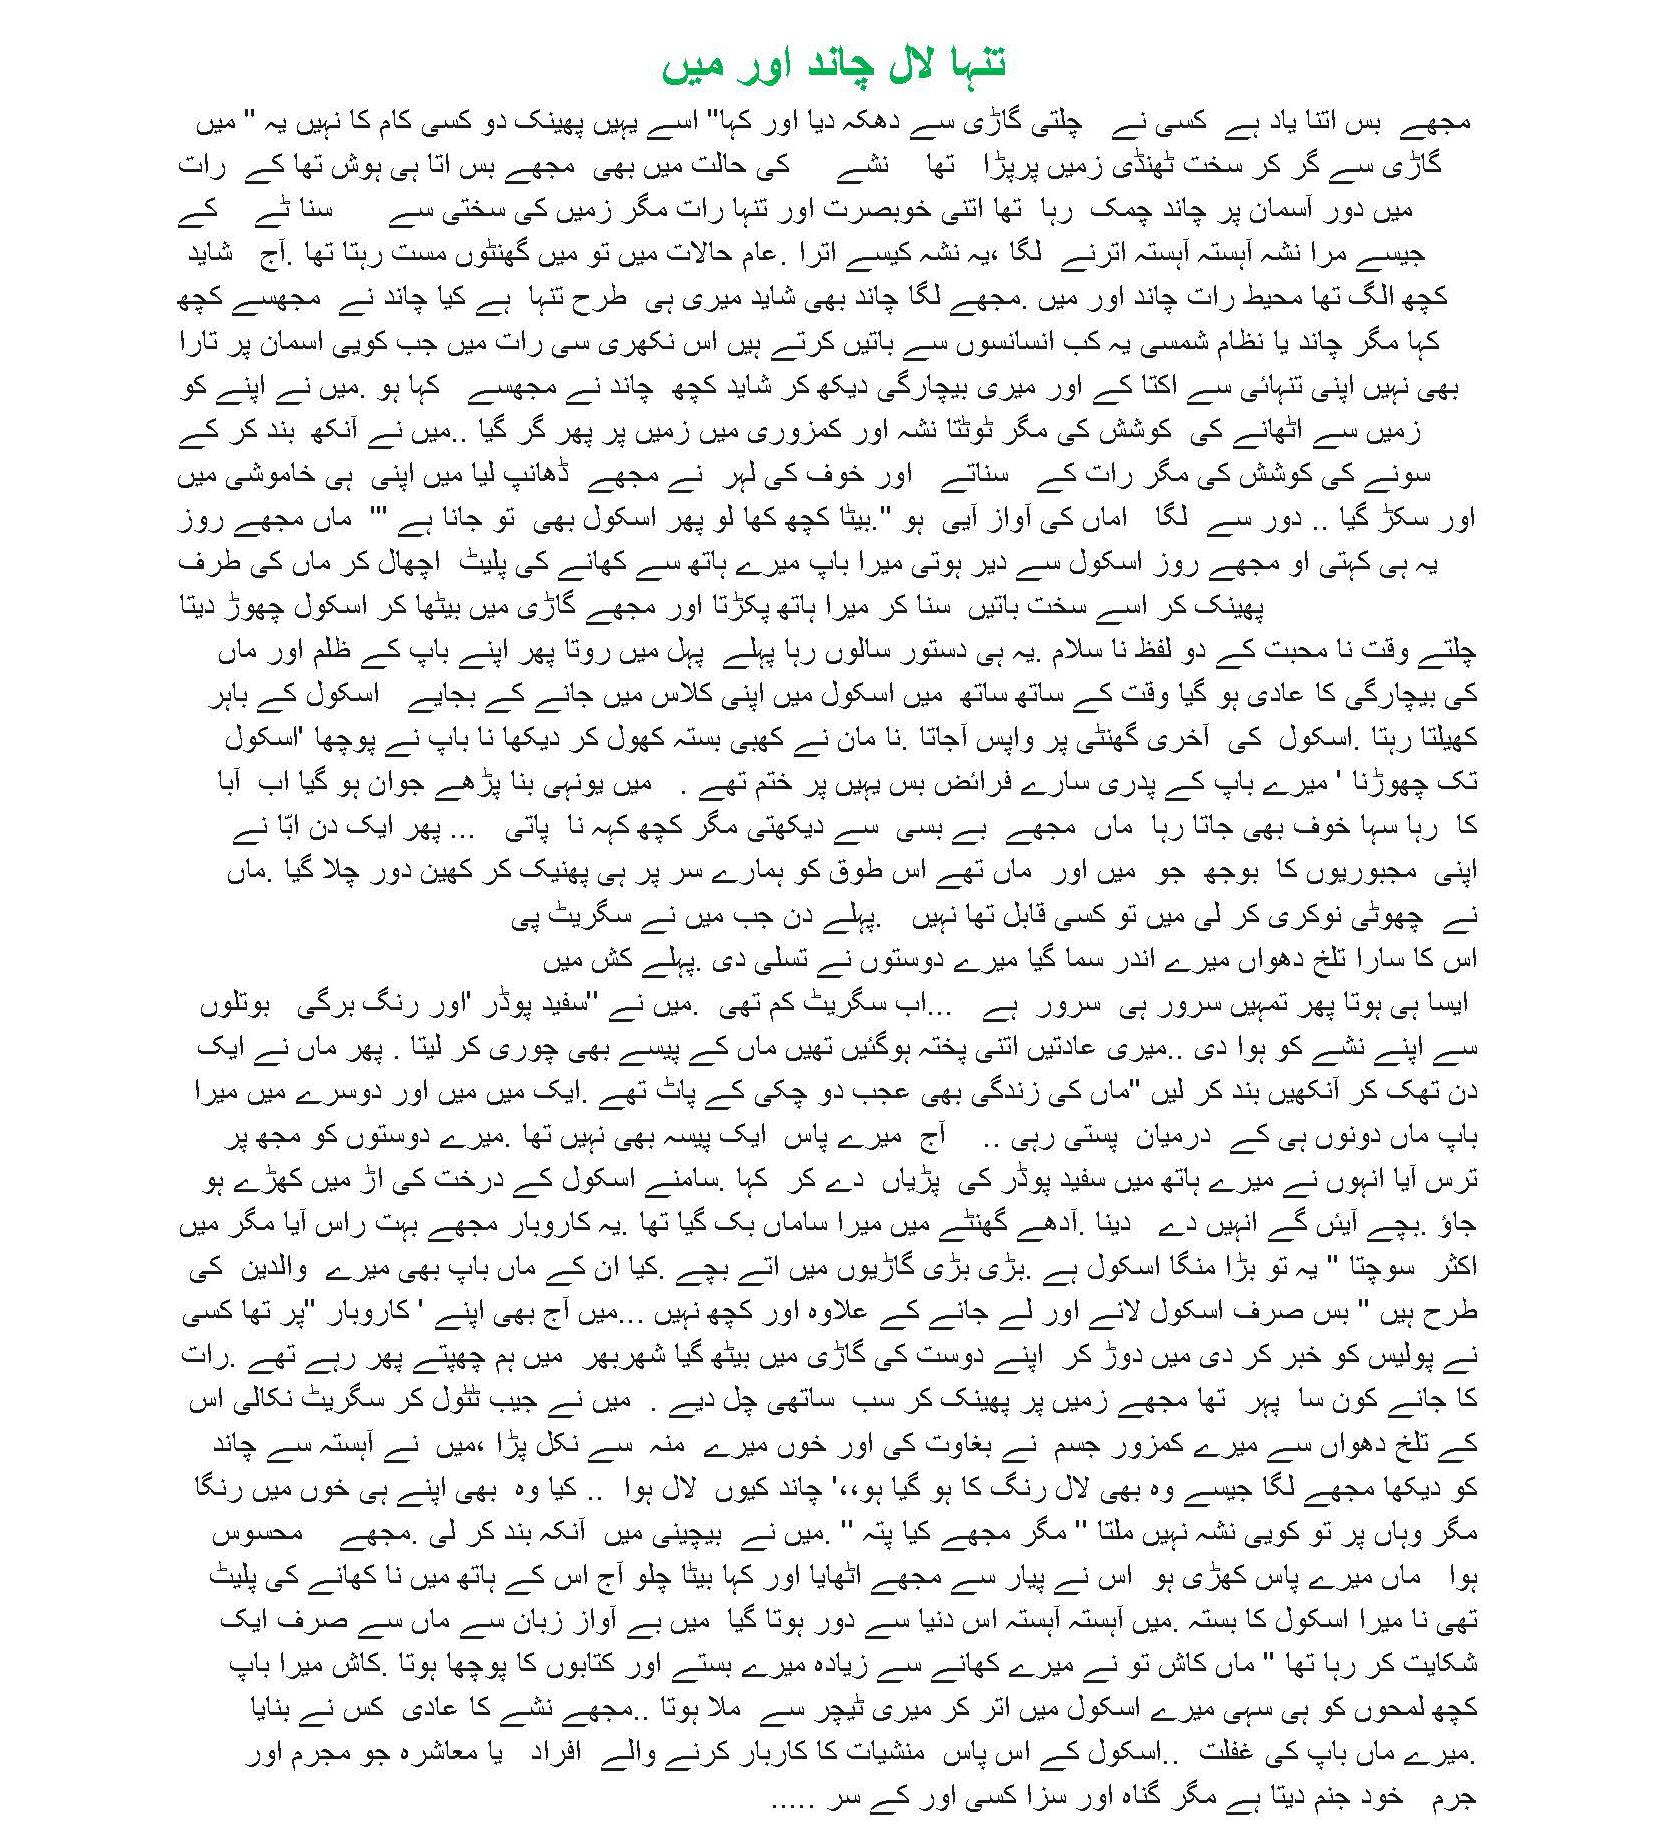 تنہا لال چاند اور میں
مجھے بس اتنا یاد ہے کسی نے چلتی گاڑی سے دھکہ دیا اور کہا" اسے یہیں پھینک دو کسی کام کا نہیں یہ " میں
گاڑی سے گر کر سخت ٹھنڈی زمیں پرپڑا تھا نشے کی حالت میں بھی مجھے بس اتا ہی ہوش تھا کے رات
میں دور آسمان پر چاند چمک رہا تھا اتنی خوبصرت اور تنہا رات مگر زمیں کی سختی سے سنا ٹے کے
جیسے مرا نشہ آہستہ آہستہ اترنے لگا ،یہ نشہ کیسے اترا .عام حالات میں تو میں گھنٹوں مست رہتا تھا .آج شاید
کچھ الگ تھا محیط رات چاند اور میں .مجھے لگا چاند بھی شاید میری ہی طرح تنہا ہے کیا چاند نے مجھسے کچھ
کہا مگر چاند یا نظام شمسی یہ کب انسانسوں سے باتیں کرتے ہیں اس نکھری سی رات میں جب کویی اسمان پر تارا
بھی نہیں اپنی تنہائی سے اکتا کے اور میری بیچارگی دیکھ کر شاید کچھ چاند نے مجھسے کہا ہو .میں نے اپنے کو
زمیں سے اٹھانے کی کوشش کی مگر ٹوٹتا نشہ اور کمزوری میں زمیں پر پھر گر گیا ..میں نے آنکھ بند کر کے
سونے کی کوشش کی مگر رات کے سناتے اور خوف کی لہر نے مجھے ڈھانپ لیا میں اپنی ہی خاموشی میں
اور سکڑ گیا .. دور سے لگا اماں کی آواز آیی ہو ".بیٹا کچھ کھا لو پھر اسکول بھی تو جانا ہے "' ماں مجھے روز
یہ ہی کہتی او مجھے روز اسکول سے دیر ہوتی میرا باپ میرے ہاتھ سے کھانے کی پلیٹ اچھال کر ماں کی طرف
پھینک کر اسے سخت باتیں سنا کر میرا ہاتھ پکڑتا اور مجھے گاڑی میں بیٹھا کر اسکول چھوڑ دیتا
چلتے وقت نا محبت کے دو لفظ نا سلام .یہ ہی دستور سالوں رہا پہلے پہل میں روتا پھر اپنے باپ کے ظلم اور ماں
کی بیچارگی کا عادی ہو گیا وقت کے ساتھ ساتھ میں اسکول میں اپنی کلاس میں جانے کے بجایے اسکول کے باہر
کھیلتا رہتا .اسکول کی آخری گھنٹی پر واپس آجاتا .نا مان نے کھبی بستہ کھول کر دیکھا نا باپ نے پوچھا 'اسکول
تک چھوڑنا ' میرے باپ کے پدری سارے فرائض بس یہیں پر ختم تھے . میں یونہی بنا پڑھے جوان ہو گیا اب آبا
کا رہا سہا خوف بھی جاتا رہا ماں مجھے بے بسی سے دیکھتی مگر کچھ کہہ نا پاتی ... پھر ایک دن ابّا نے
اپنی مجبوریوں کا بوجھ جو میں اور ماں تھے اس طوق کو ہمارے سر پر ہی پھنیک کر کھین دور چلا گیا .ماں
نے چھوٹی نوکری کر لی میں تو کسی قابل تھا نہیں .پہلے دن جب میں نے سگریٹ پی
اس کا سارا تلخ دھواں میرے اندر سما گیا میرے دوستوں نے تسلی دی .پہلے کش میں
ایسا ہی ہوتا پھر تمہیں سرور ہی سرور ہے ...اب سگریٹ کم تھی .میں نے "سفید پوڈر 'اور رنگ برگی بوتلوں
سے اپنے نشے کو ہوا دی ..میری عادتیں اتنی پختہ ہوگئیں تھیں ماں کے پیسے بھی چوری کر لیتا . پھر ماں نے ایک
دن تھک کر آنکھیں بند کر لیں "ماں کی زندگی بھی عجب دو چکی کے پاٹ تھے .ایک میں میں اور دوسرے میں میرا
باپ ماں دونوں ہی کے درمیان پستی رہی .. آج میرے پاس ایک پیسہ بھی نہیں تھا .میرے دوستوں کو مجھ پر
ترس آیا انہوں نے میرے ہاتھ میں سفید پوڈر کی پڑیاں دے کر کہا .سامنے اسکول کے درخت کی اڑ میں کھڑے ہو
جاؤ .بچے آیئں گے انہیں دے دینا .آدھے گھنٹے میں میرا ساماں بک گیا تھا .یہ کاروبار مجھے بہت راس آیا مگر میں
اکثر سوچتا " یہ تو بڑا منگا اسکول ہے .بڑی بڑی گاڑیوں میں اتے بچے .کیا ان کے ماں باپ بھی میرے والدین کی
طرح ہیں " بس صرف اسکول لانے اور لے جانے کے علاوہ اور کچھ نہیں ...میں آج بھی اپنے ' کاروبار "پر تھا کسی
نے پولیس کو خبر کر دی میں دوڑ کر اپنے دوست کی گاڑی میں بیٹھ گیا شہربھر میں ہم چھپتے پھر رہے تھے .رات
کا جانے کون سا پہر تھا مجھے زمیں پر پھینک کر سب ساتھی چل دیے . میں نے جیب ٹٹول کر سگریٹ نکالی اس
کے تلخ دھواں سے میرے کمزور جسم نے بغاوت کی اور خوں میرے منہ سے نکل پڑا ،میں نے آہستہ سے چاند
کو دیکھا مجھے لگا جیسے وہ بھی لال رنگ کا ہو گیا ہو،،' چاند کیوں لال ہوا .. کیا وہ بھی اپنے ہی خوں میں رنگا
مگر وہاں پر تو کویی نشہ نہیں ملتا " مگر مجھے کیا پتہ " .میں نے بیچینی میں آنکہ بند کر لی .مجھے محسوس
ہوا ماں میرے پاس کھڑی ہو اس نے پیار سے مجھے اٹھایا اور کہا بیٹا چلو آج اس کے ہاتھ میں نا کھانے کی پلیٹ
تھی نا میرا اسکول کا بستہ .میں آہستہ آہستہ اس دنیا سے دور ہوتا گیا میں بے آواز زبان سے ماں سے صرف ایک
شکایت کر رہا تھا " ماں کاش تو نے میرے کھانے سے زیادہ میرے بستے اور کتابوں کا پوچھا ہوتا .کاش میرا باپ
کچھ لمحوں کو ہی سہی میرے اسکول میں اتر کر میری ٹیچر سے ملا ہوتا ..مجھے نشے کا عادی کس نے بنایا
.میرے ماں باپ کی غفلت ..اسکول کے اس پاس منشیات کا کاربار کرنے والے افراد یا معاشرہ جو مجرم اور
جرم خود جنم دیتا ہے مگر گناہ اور سزا کسی اور کے سر .....